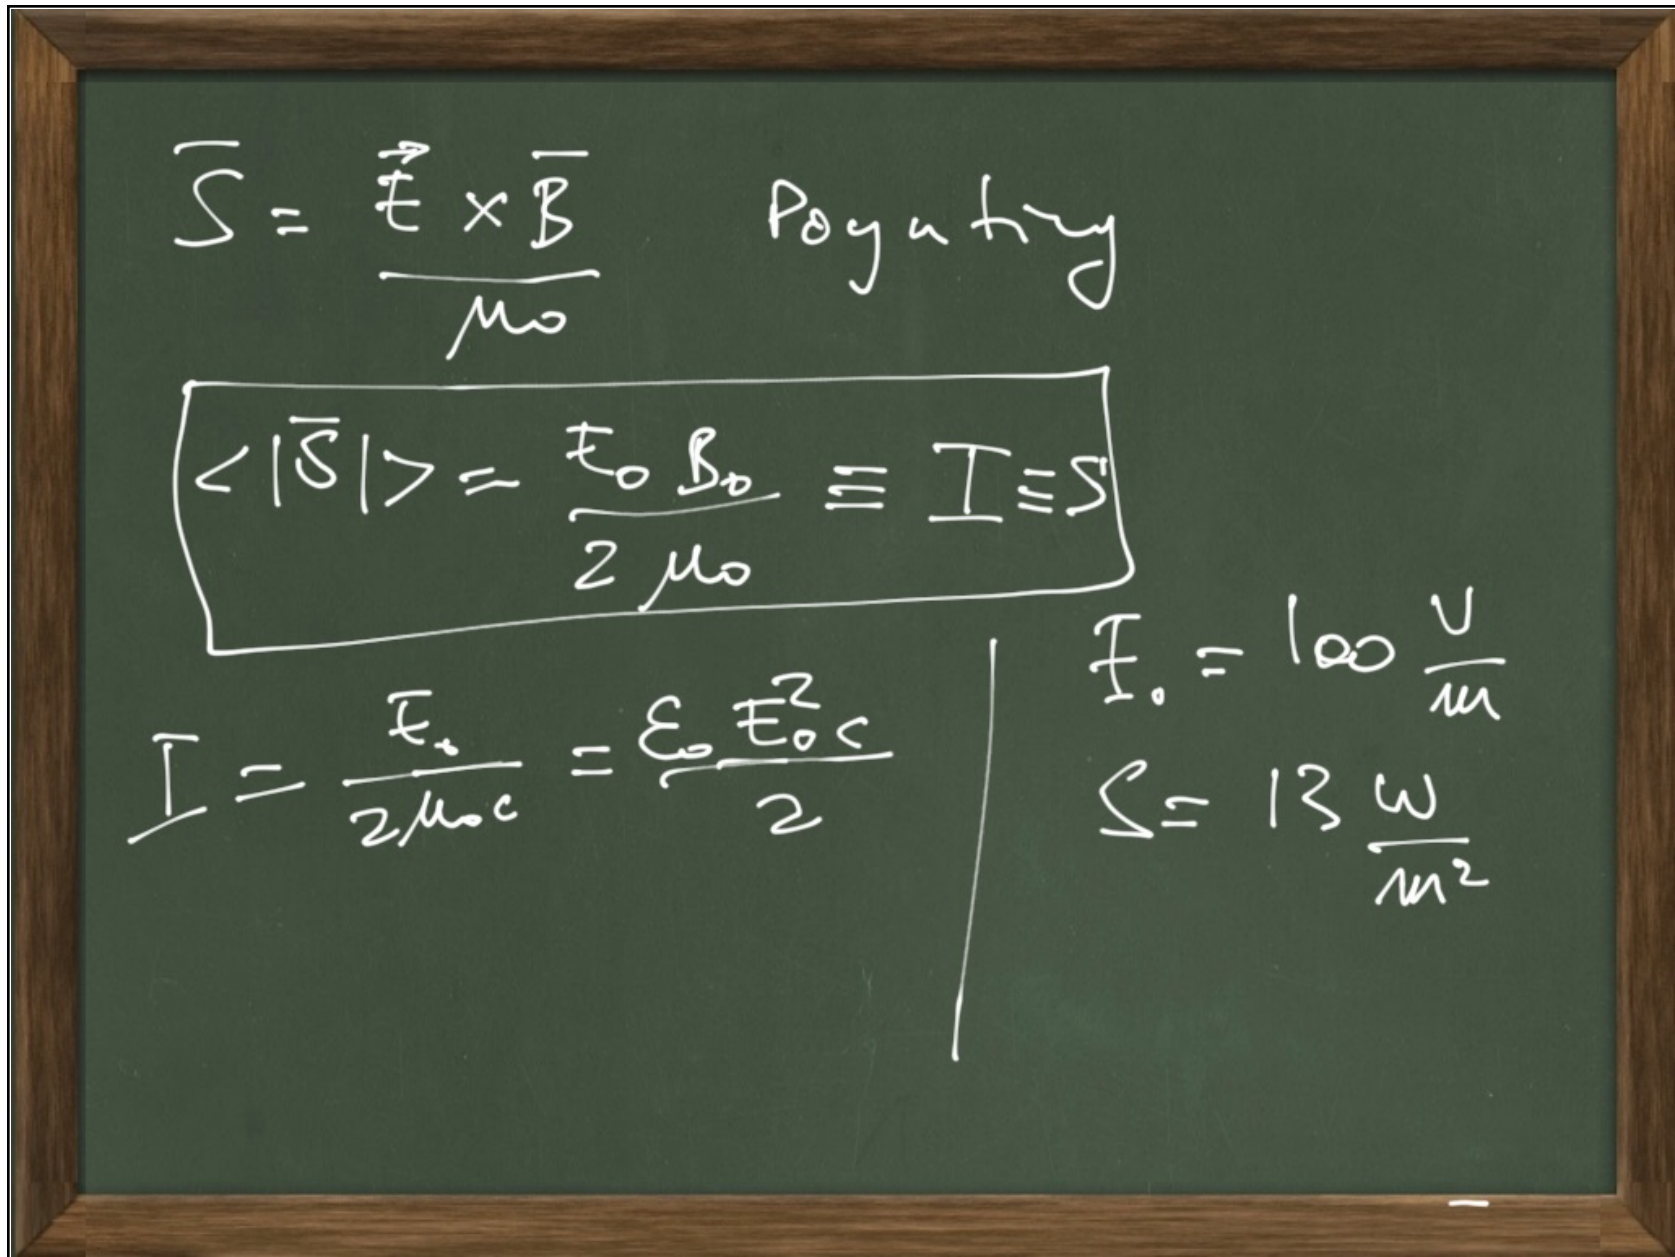 S̅ = E⃗ × B̅ / μ₀ Poynting
<|S̅|> = E₀ B₀ / 2 μ₀ ≡ I ≡ S
I = E₀ / 2μ₀c = ε₀ E₀² c / 2
E₀ = 100 V/m
S = 13 W/m²